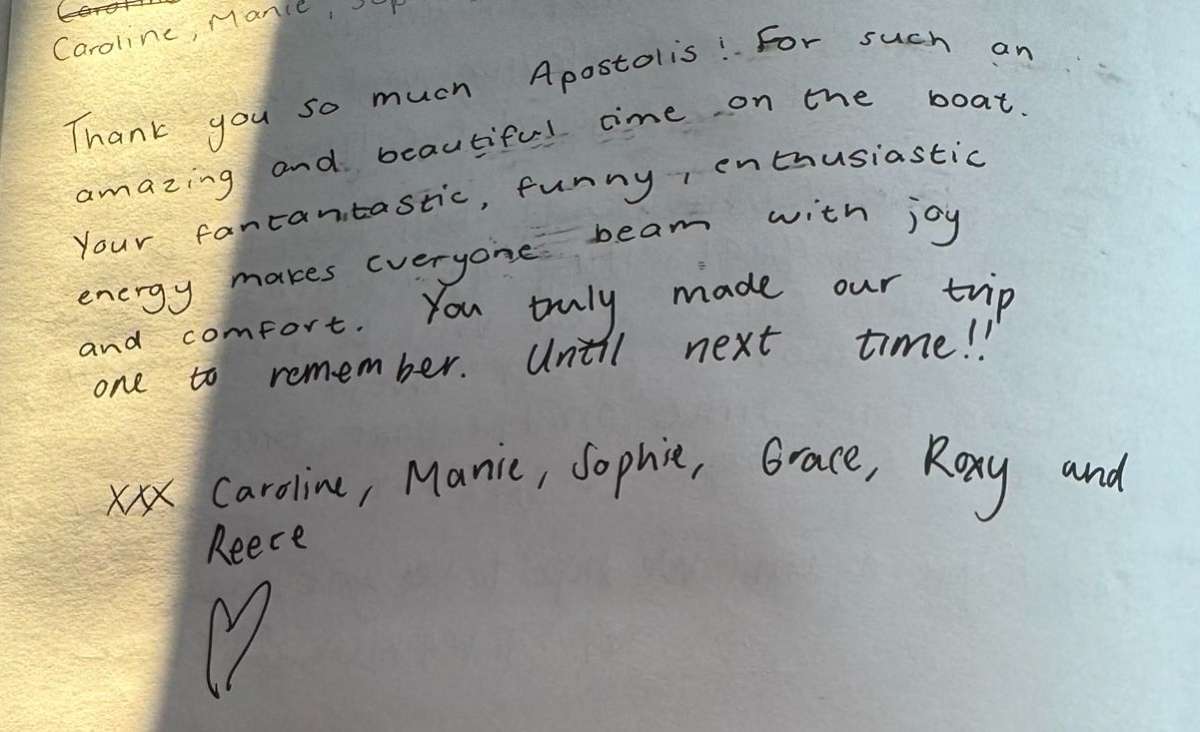 Caroline, Manie,
Thank you so much Apostolis! For such an
amazing and beautiful time on the boat.
Your fantantastic, funny, enthusiastic
energy makes everyone beam with joy
and comfort. You truly made our trip
one to remember. Until next time!!
xxx Caroline, Manie, Sophie, Grace, Roxy and
Reece